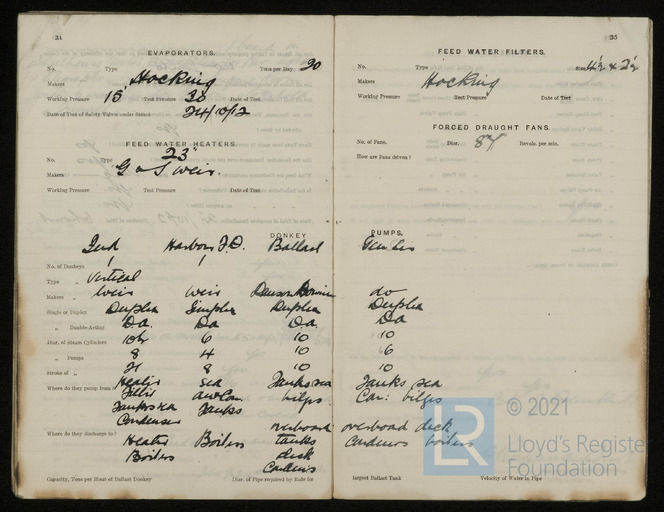 34
EVAPORATORS.
No. Type Tons per Day 20
Makers Hocking
Working Pressure 15 Test Pressure 30 Date of Test
Date of Test of Safety Valves under Steam 24/10/12
FEED WATER HEATERS.
No. Type 23"
Makers G & J Weir.
Working Pressure Test Pressure Date of Test
DONKEY
Feed Harbour F.D. Ballast
No. of Donkeys 1 1
Type Vertical
Makers Weir Weir
Single or Duplex Duplex Simplex Duplex
Double-Acting Da. Da Da.
Diar. of Steam Cylinders 10½ 6 10
Pumps 8 4 10
Stroke of 21 8 10
Where do they pump from? Heater sea Tanks sea
bilges
Tanks sea Tanks
Condenser
Where do they discharge to? Heater Boilers overboard tanks
Boilers deck
Condensers
Capacity, Tons per Hour of Ballast Donkey Diar. of Pipe required by Rule for
35
FEED WATER FILTERS.
No. Type Size 4½ x 2½
Makers Hocking
Working Pressure Test Pressure Date of Test
FORCED DRAUGHT FANS.
No. of Fans. Diar. 84 Revols. per min.
How are Fans driven?
PUMPS.
do
Duplex
Da
10
6
10
Tanks sea
Con: bilges
overboard deck
Condensers boilers
largest Ballast Tank Velocity of Water in Pipe
LR
© 2021
Lloyd's Register
Foundation